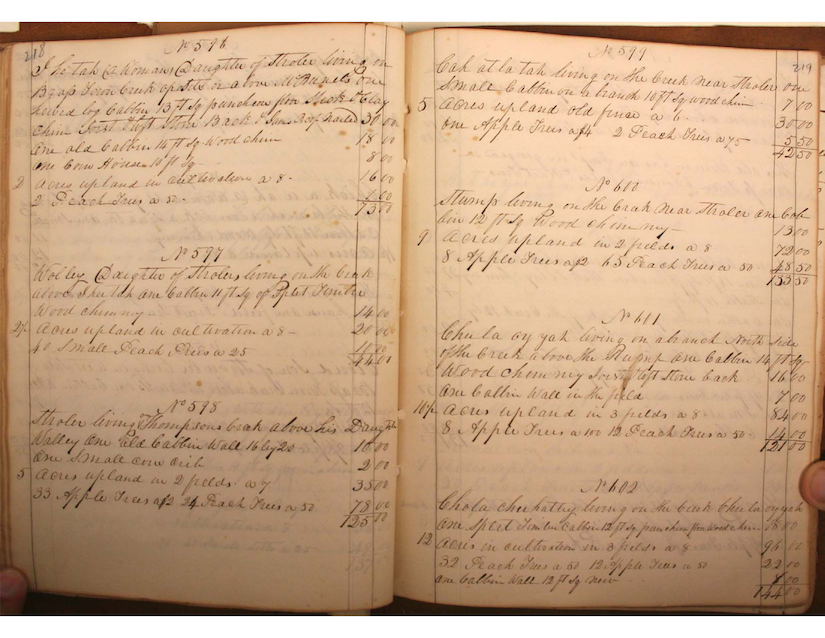 218
No 596
She tah (a Woman) Daughter of Stroler living on
Town Creek oposite or above McDaniels one
hewed log Cabbin 13 ft Sq puncheon floor Stick & Clay
chim Joist & loft Stone Back & Roof Nailed 30 00
One old Cabbin 14 ft Sq Wood chim 18 00
One Corn House 10 ft Sq 8 00
2 Acres upland in cultivation a 8 - 16 00
2 Peach Trees a 50 - 1 00
73 00
No 597
Daughter of Strolers living on the Creek
above She tah one Cabbin 11 ft Sq of Split Timber
Wood chimny 14 00
2½ Acres upland in cultivation a 8 - 20 00
40 Small Peach Trees a 25 10 00
44 00
No 598
Stroler living Thompsons Creek above his Daughter
one old Cabbin Wall 16 by 20 10 00
One Small corn crib 2 00
5 Acres upland in 2 fields a 7 35 00
33 Apple Trees a $2 24 Peach Trees a 50 78 00
125 00
219
No 599
Cah at la tah living on the Creek near Stroler one
Small Cabbin on a branch 10 ft Sq wood chim 7 00
5 Acres upland old a 6 - 30 00
One Apple Trees a $4 2 Peach Trees a 75 5 50
42 50
No 600
Stump living on the Creek near Stroler one Cab
bin 12 ft Sq Wood chimny 13 00
9 Acres upland in 2 fields a 8 72 00
8 Apple Trees a $2 65 Peach Trees a 50 48 50
133 50
No 601
Chu la oy yah living on a branch North Side
of the Creek above the Stump one Cabbin 14 ft Sq
Wood chimny Joist & loft Stone back 16 00
One Cabbin Wall in the field 7 00
10½ Acres upland in 3 fields a 8 84 00
8 Apple Trees a 100 12 Peach Trees a 50 14 00
121 00
No 602
living on the Creek Chu la oy yah
One Split Timber Cabbin 12 ft Sq puncheon floor Wood chim 18 00
12 Acres in cultivation in 3 fields a 8 96 00
32 Peach Trees a 50 12 Apple Trees a 50 22 00
One Cabbin Wall 12 ft Sq New 8 00
144 00